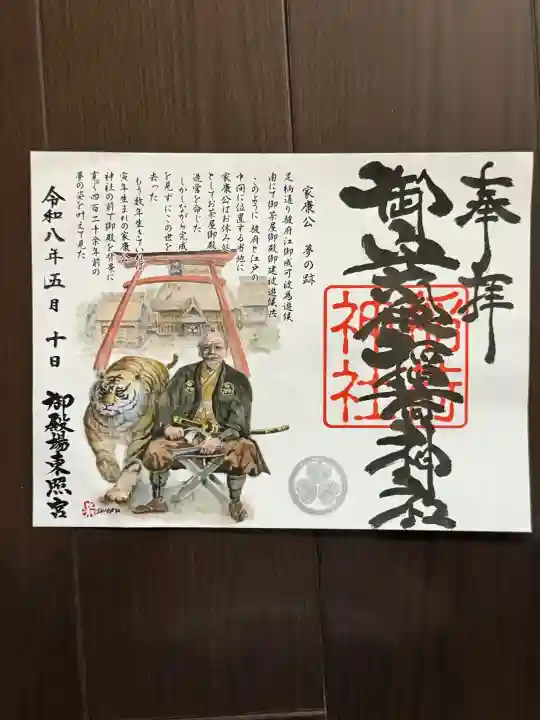 奉拝
稲荷
神社
家康公 夢の跡
足柄通り駿府江御成可被為遊候
由にて御茶屋御殿御建被遊候共
このように駿府と江戸の
中間に位置する当地に
家康公はお休み処
としてお茶屋御殿
造営を命じた
しかしながら完成
を見ずにこの世を
去った
もう数年生きていれば
寅年生まれの家康公
神社の前で御殿を背景に
寛ぐ四百二十余年前の
夢の姿を叶えて見た
令和八年五月十日
御殿場東照宮